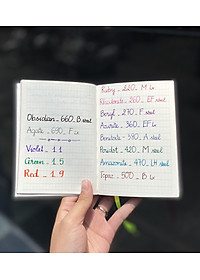 Obsidian _ 660, B وسط
Agate _ 690, F
Violet _ 1.1
Green _ 1.5
Red _ 1.9
Ruby _ 220, M
Rhodonite _ 260, EF وسط
Beryl _ 270, F وسط
Azurite _ 360, EF
Benitoite _ 390, A وسط
Peridot _ 420, M وسط
Amazonite _ 470, LH وسط
Topaz _ 500 _ B